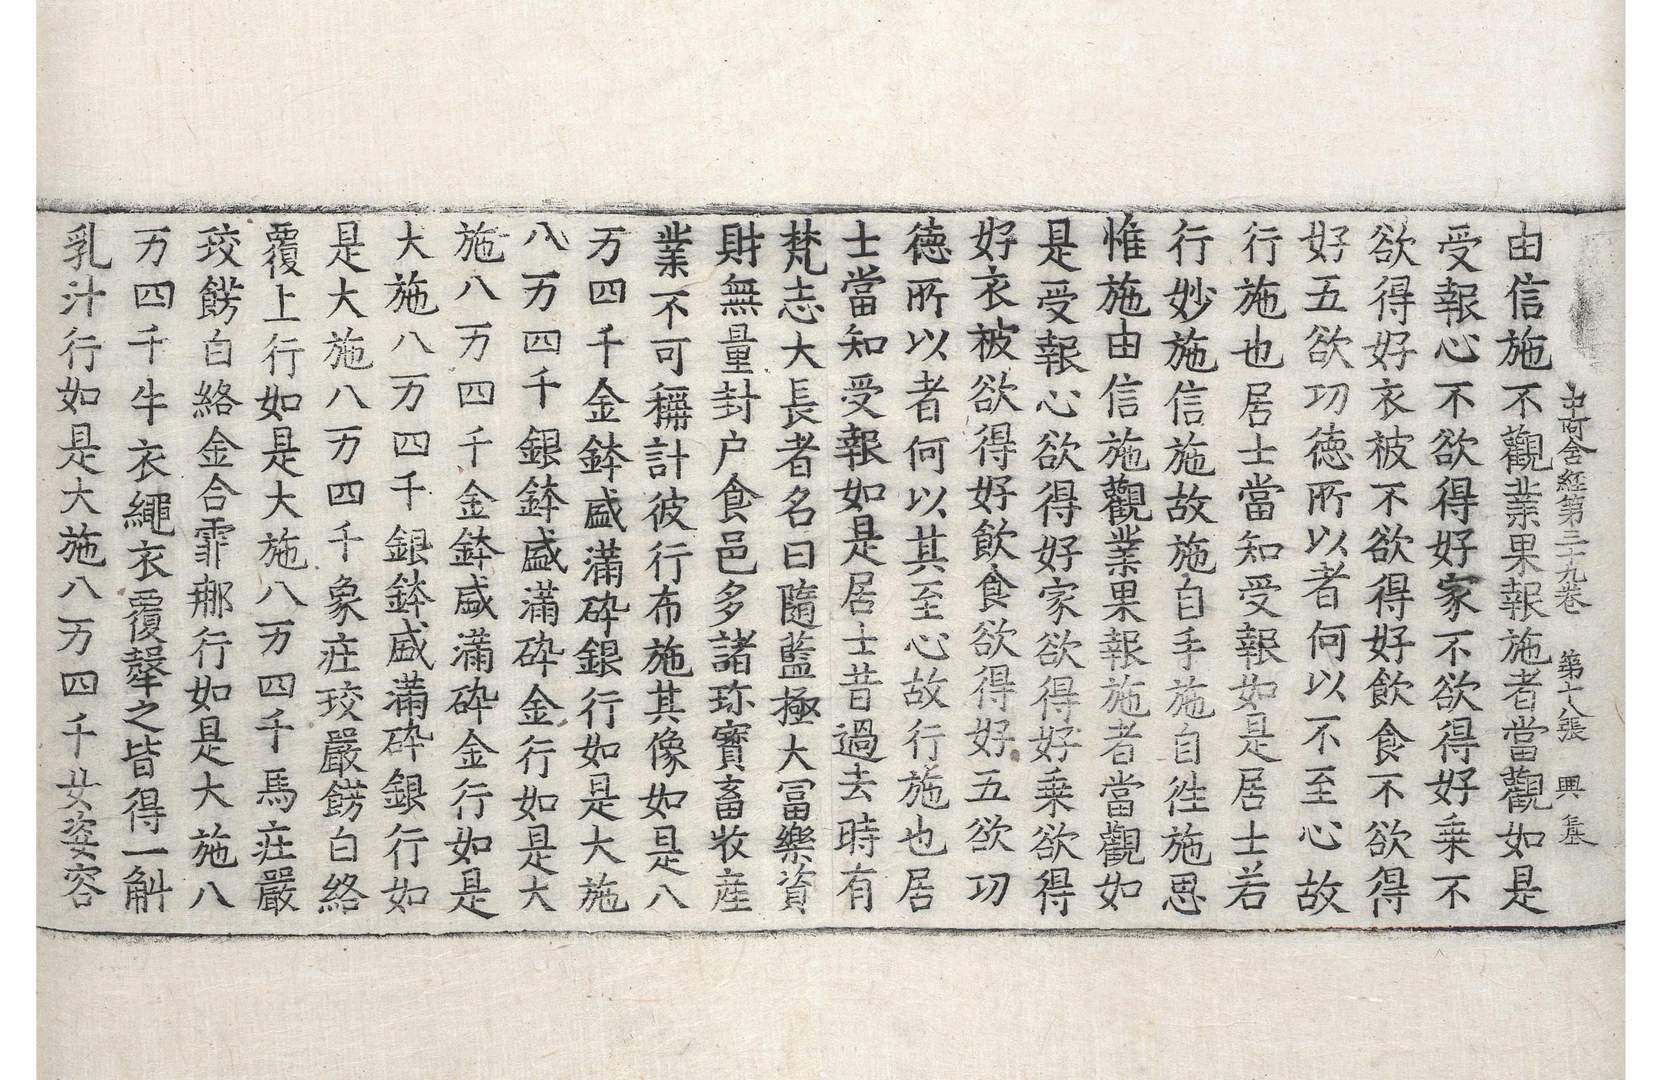 中阿含経第三十九巻 第十八張 興
由信施不觀業果報施者當觀如是
受報心不欲得好家不欲得好乗不
欲得好衣被不欲得好飲食不欲得
好五欲功德所以者何以不至心故
行施也居士當知受報如是居士若
行妙施信施故施自手施自徃施思
惟施由信施觀業果報施者當觀如
是受報心欲得好家欲得好乗欲得
好衣被欲得好飲食欲得好五欲功
德所以者何以其至心故行施也居
士當知受報如是居士昔過去時有
梵志大長者名曰隨藍極大冨樂資
財無量封户食邑多諸珎寶畜牧産
業不可稱計彼行布施其像如是八
万四千金鉢盛滿碎銀行如是大施
八万四千銀鉢盛滿碎金行如是大
施八万四千金鉢盛滿碎金行如是
大施八万四千銀鉢盛滿碎銀行如
是大施八万四千象莊挍嚴餝白絡
覆上行如是大施八万四千馬莊嚴
挍餝白絡金合霏那行如是大施八
万四千牛衣繩衣覆𤛓之皆得一斛
乳汁行如是大施八万四千女姿容